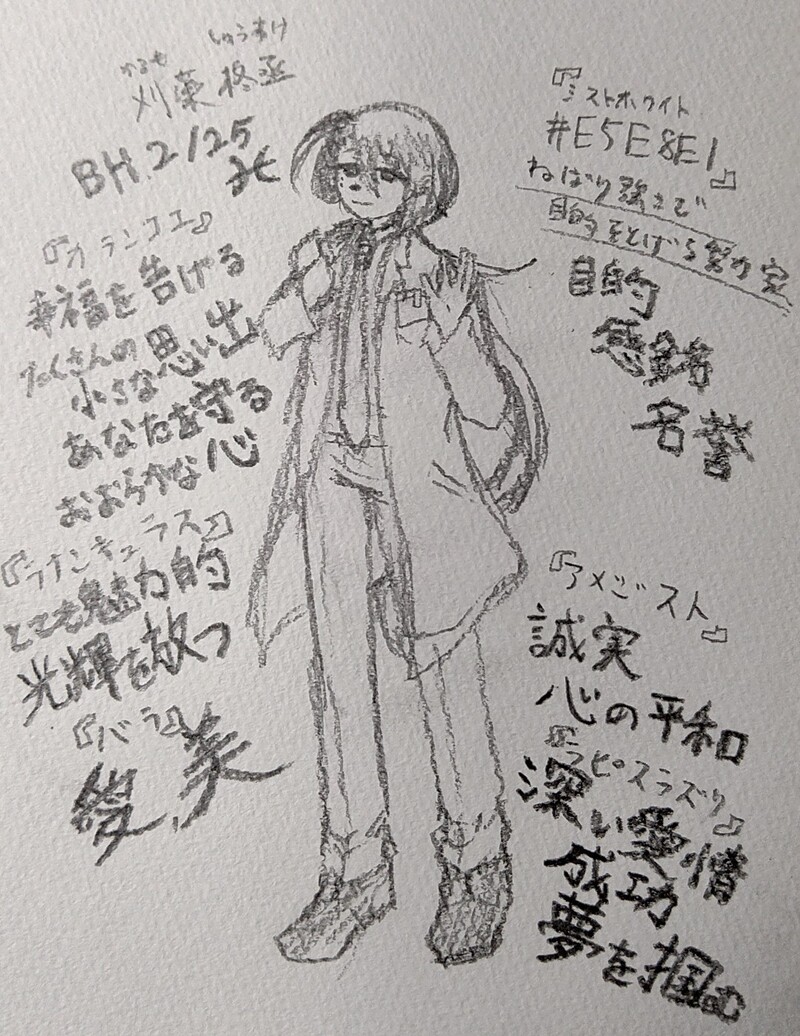 かるも しゅうすけ
刈藻 柊丞
BH.2/25
『カランコエ』
幸福を告げる
たくさんの思い出
小さな
あなたを守る
おおらかな心
『ラナンキュラス』
とても魅力的
光輝を放つ
『バラ』
愛、美
『ミストホワイト
#E5E8E1』
ねばり強さで
目的をとげる努力家
目的
感銘
名誉
『アメジスト』
誠実
心の平和
『ラピスラズリ』
深い愛情
成功
夢を掴む